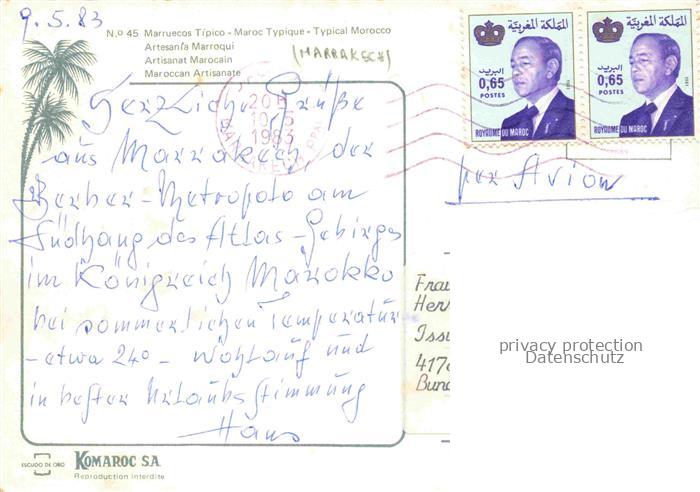 9.5.83
N.º 45 Marruecos Típico - Maroc Typique - Typical Morocco
Artesanía Marroqui
(MARRAKECH)
Artisanat Marocain
Maroccan Artisanate
المملكة المغربية
البريد
0,65
POSTES
ROYAUME DU MAROC
المملكة المغربية
البريد
0,65
POSTES
ROYAUME DU MAROC
1983
per Avion
Herzliche Grüße
aus Marrakech, der
Berber-Metropole am
Südhang des Atlas-Gebirges
im Königreich Marokko
bei sommerlichen Temperatür
-etwa 24°- Wohlauf und
in bester Urlaubsstimmung
Hans
Frau
Herr
Issu
417
Bund
privacy protection
Datenschutz
ESCUDO DE ORO
KOMAROC S.A.
Reproduction interdite